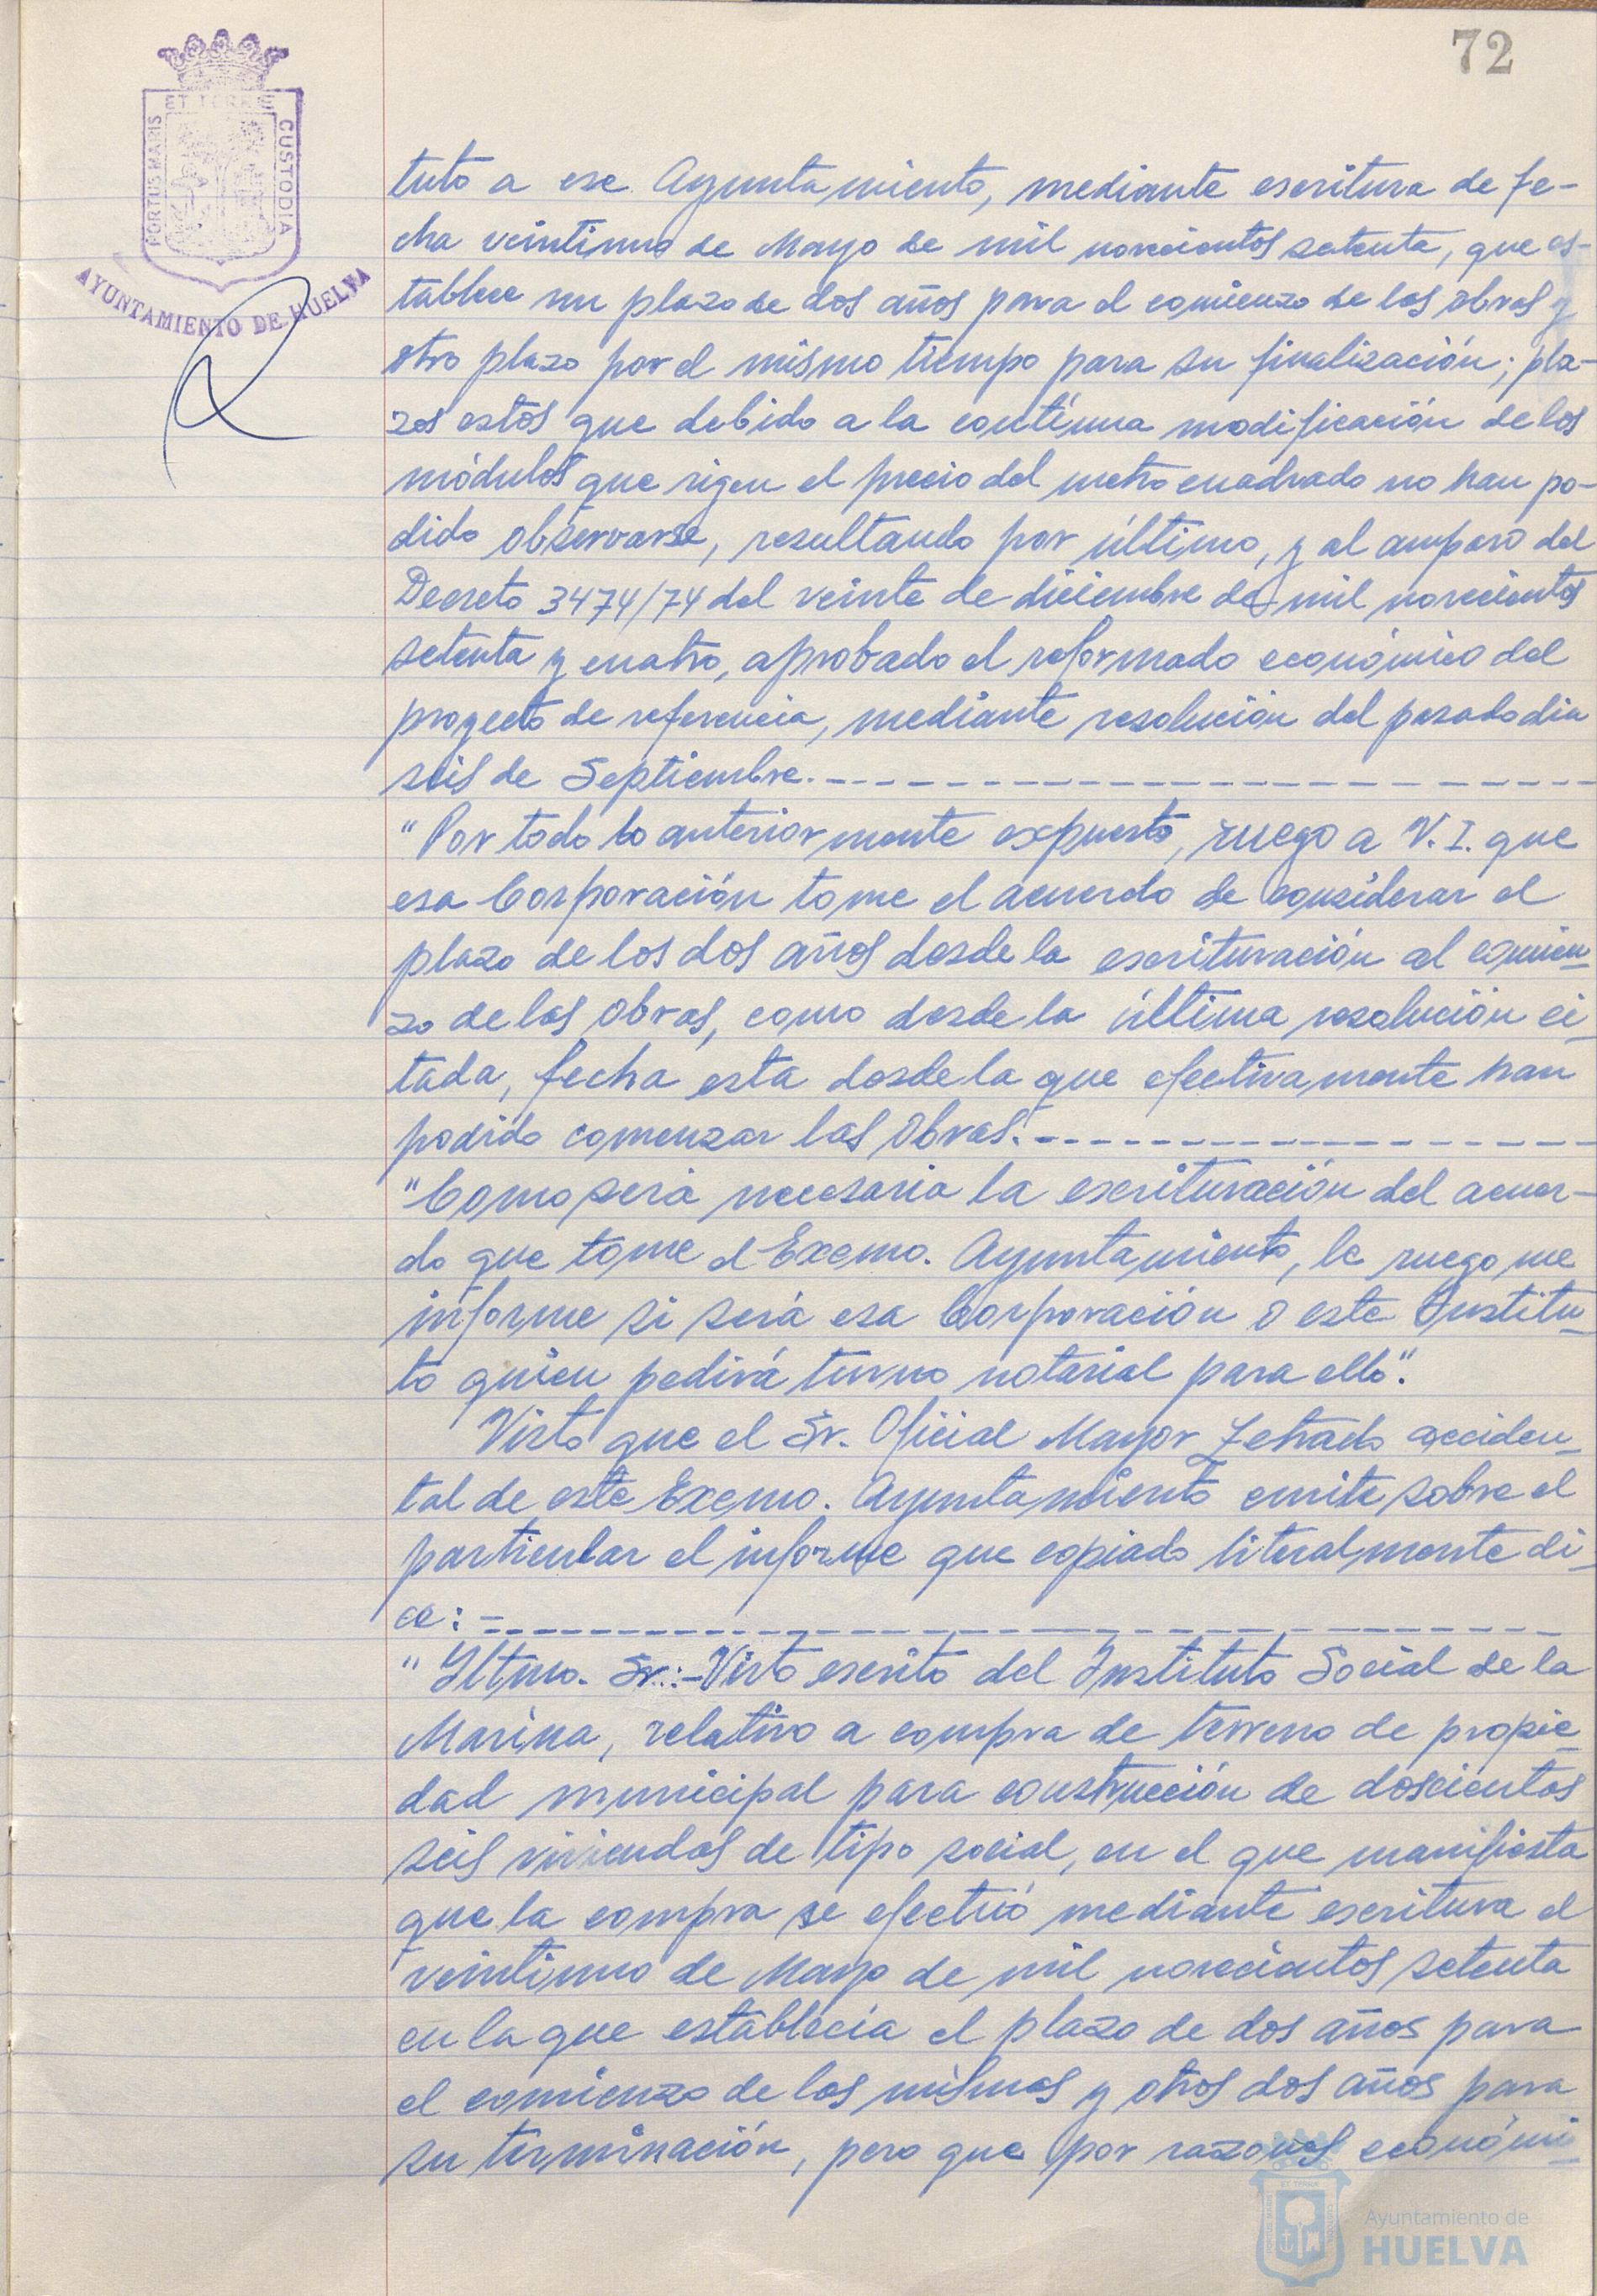 72
ET TERRAE
PORTUS MARIS
CUSTODIA
AYUNTAMIENTO DE HUELVA
tuto a ese Ayuntamiento, mediante escritura de fe-
cha veintiuno de Mayo de mil novecientos setenta, que es-
tablece un plazo de dos años para el comienzo de las obras y
otro plazo por el mismo tiempo para su finalización; pla-
zos estos que debido a la contínua modificación de los
módulos que rigen el precio del metro cuadrado no han po-
dido observarse, resultando por último, y al amparo del
Decreto 3474/74 del veinte de diciembre de mil novecientos
setenta y cuatro, aprobado el reformado económico del
proyecto de referencia, mediante resolución del pasado dia
seis de Septiembre.-----
"Por todo lo anteriormente expuesto, ruego a V.I. que
esa Corporación tome el acuerdo de considerar el
plazo de los dos años desde la escrituración al comien-
zo de las obras, como desde la última resolución ci-
tada, fecha esta desde la que efectivamente han
podido comenzar las obras.-----
"Como será necesaria la escrituración del acuer-
do que tome el Excmo. Ayuntamiento, le ruego me
informe si será esa Corporación o este Institu-
to quien pedirá turno notarial para ello".
Visto que el Sr. Oficial Mayor Letrado acciden-
tal de este Excmo. Ayuntamiento emite sobre el
particular el informe que copiado literalmente di-
ce:-----
"Iltmo. Sr.:-Visto escrito del Instituto Social de la
Marina, relativo a compra de terreno de propie-
dad municipal para construcción de doscientas
seis viviendas de tipo social, en el que manifiesta
que la compra se efectuó mediante escritura el
veintiuno de Mayo de mil novecientos setenta
en la que establecía el plazo de dos años para
el comienzo de las mismas y otros dos años para
su terminación, pero que por razones económi-
Ayuntamiento de
HUELVA